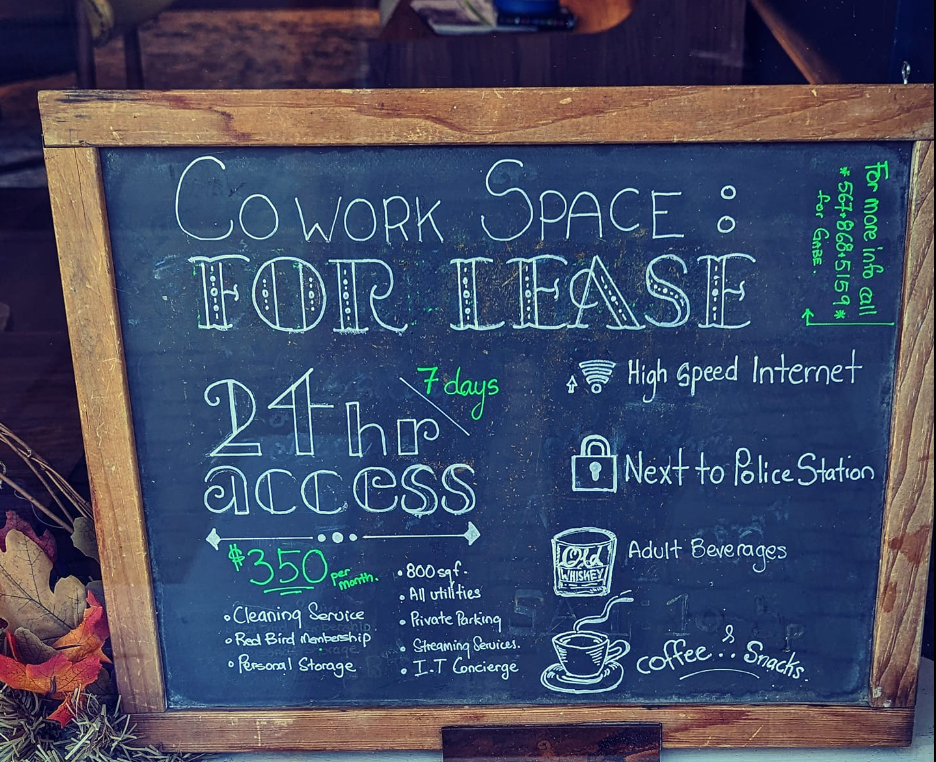 Cowork Space:
FOR LEASE
For more info call
*567•868•5159*
for Gabe.
24hr
7 days
access
$350 per month.
• Cleaning Service
• Red Bird Membership
• Personal Storage
• 800 sqf.
• All utilities
• Private Parking
• Streaming Services.
• I.T Concierge
High speed Internet
Next to Police Station
Old
WHISKEY
Adult Beverages
coffee & Snacks.